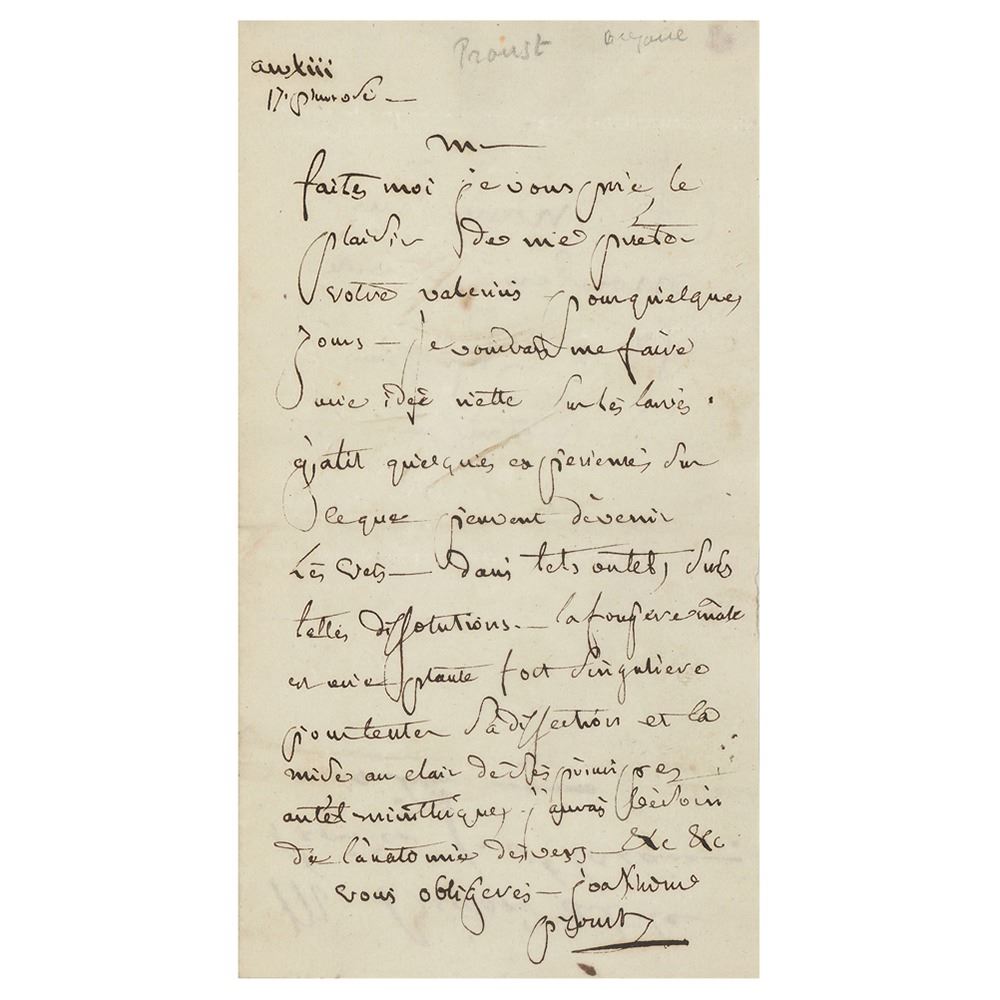 Proust
an xiii
17 pluviose —
M —
faites moi je vous prie le
plaisir de me prêter
votre valerius pour quelques
jours — je voudrais me faire
une ideé nette sur les larves
quelques experiences sur
leque peuvent dévenir
Les vers — dans tels ou tels, sucs
telles dissolutions. — la fougère mâle
est une plante fort singuliere
pour tenter sa dissection et la
mise au clair de ses principes
antelminthiques, j'aurai besoin
de l'anatomie des vers — &c &c
vous obligeres — joachime
proust